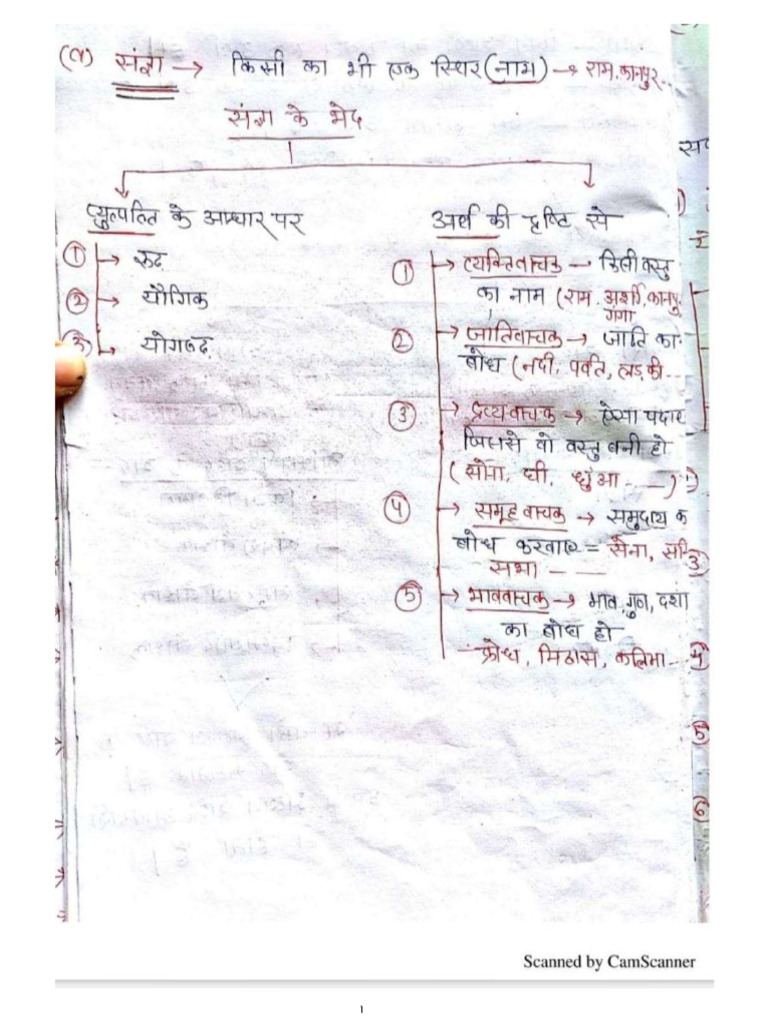 (१) संज्ञा → किसी का भी एक स्थिर (नाम) → राम, कानपुर..
संज्ञा के भेद
व्युत्पत्ति के आधार पर
① → रूढ़
② → यौगिक
③ → योगरूढ़
अर्थ की दृष्टि से
① → व्यक्तिवाचक → किसी वस्तु
का नाम (राम, कानपु
गंगा
② → जातिवाचक → जाति का
बोध (नदी, पर्वत, लड़की...
③ → द्रव्यवाचक → ऐसा पदार
जिससे वो वस्तु बनी हो
(सोना, घी, धुंआ - - -)
④ → समूहवाचक → समुदाय क
बोध करवाए = सेना,
सभा - - -
⑤ → भाववाचक → भाव, गुण, दशा
का बोध हो
क्रोध, मिठास, कालिमा...
१)
3
4
5
6
Scanned by CamScanner
१